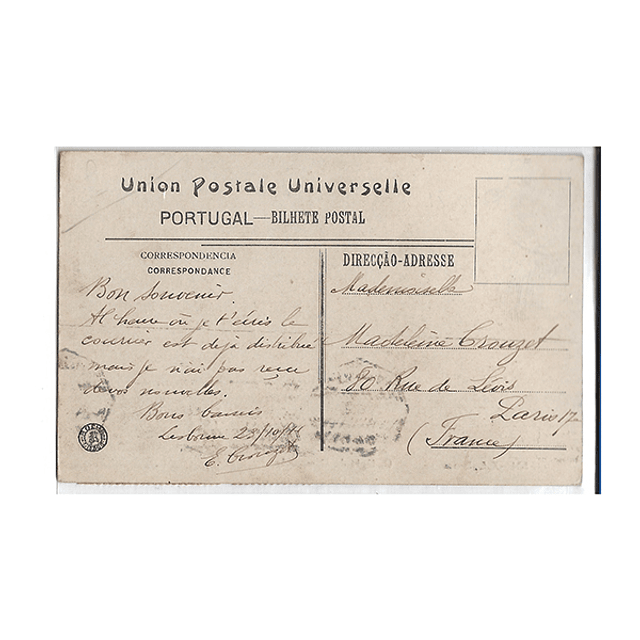 Union Postale Universelle
PORTUGAL—BILHETE POSTAL
CORRESPONDENCIA
CORRESPONDANCE
Bon souvenir.
Al heure où je t'écris le
courrier est dejà distribué
mais je n'ai pas reçu
de vos nouvelles.
Bons baisers
Lisbonne 23/10/
E. Crouzet
DIRECÇÃO-ADRESSE
Mademoiselle
Madeleine Crouzet
80 Rue de Lévis
Paris 17
(France)